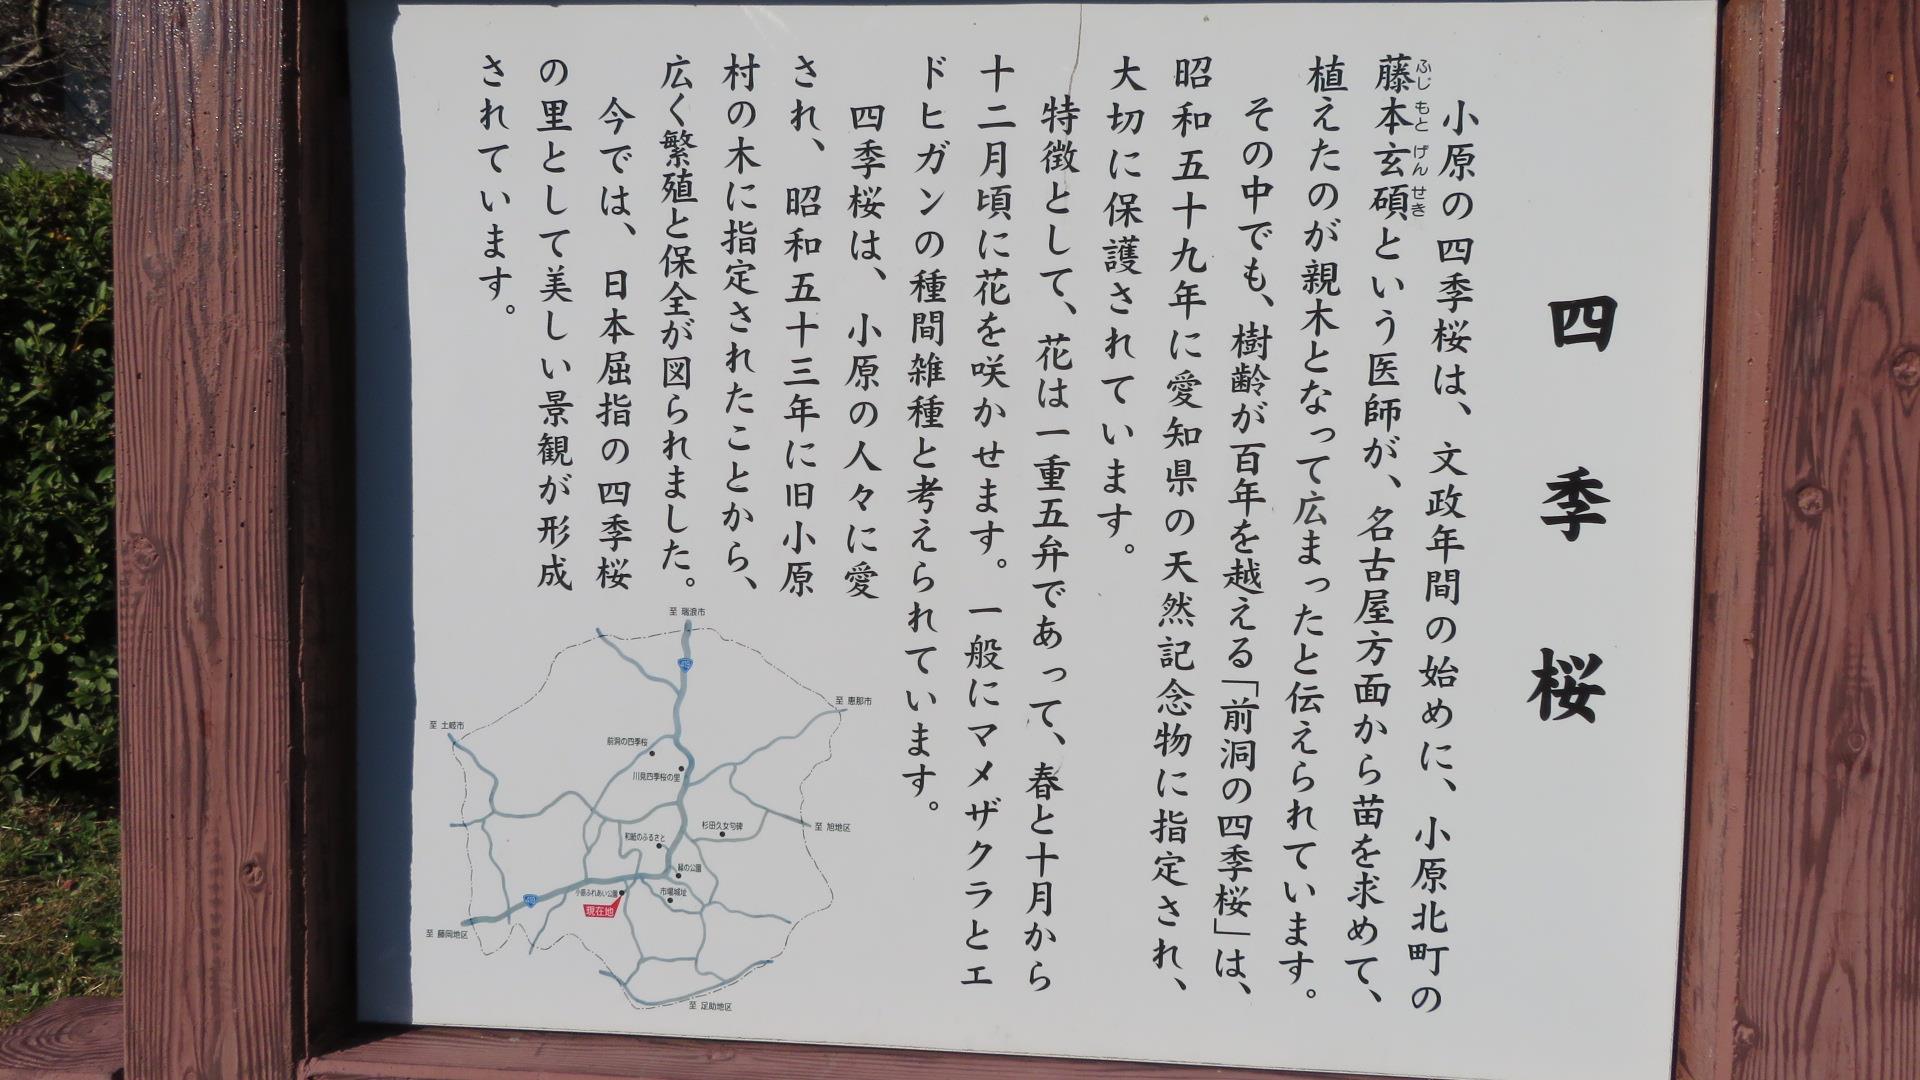 四季桜
小原の四季桜は、文政年間の始めに、小原北町の
藤本玄碩という医師が、名古屋方面から苗を求めて、
ふじもとげんせき
植えたのが親木となって広まったと伝えられています。
その中でも、樹齢が百年を越える「前洞の四季桜」は、
昭和五十九年に愛知県の天然記念物に指定され、
大切に保護されています。
特徴として、花は一重五弁であって、春と十月から
十二月頃に花を咲かせます。一般にマメザクラとエ
ドヒガンの種間雑種と考えられています。
四季桜は、小原の人々に愛
され、昭和五十三年に旧小原
村の木に指定されたことから、
広く繁殖と保全が図られました。
今では、日本屈指の四季桜
の里として美しい景観が形成
されています。
至 瑞浪市
419
至 恵那市
至 土岐市
前洞の四季桜
川見四季桜の里
杉田久女句碑
至 旭地区
和紙のふるさと
緑の公園
小原ふれあい公園
市場城址
現在地
419
至 藤岡地区
至 足助地区